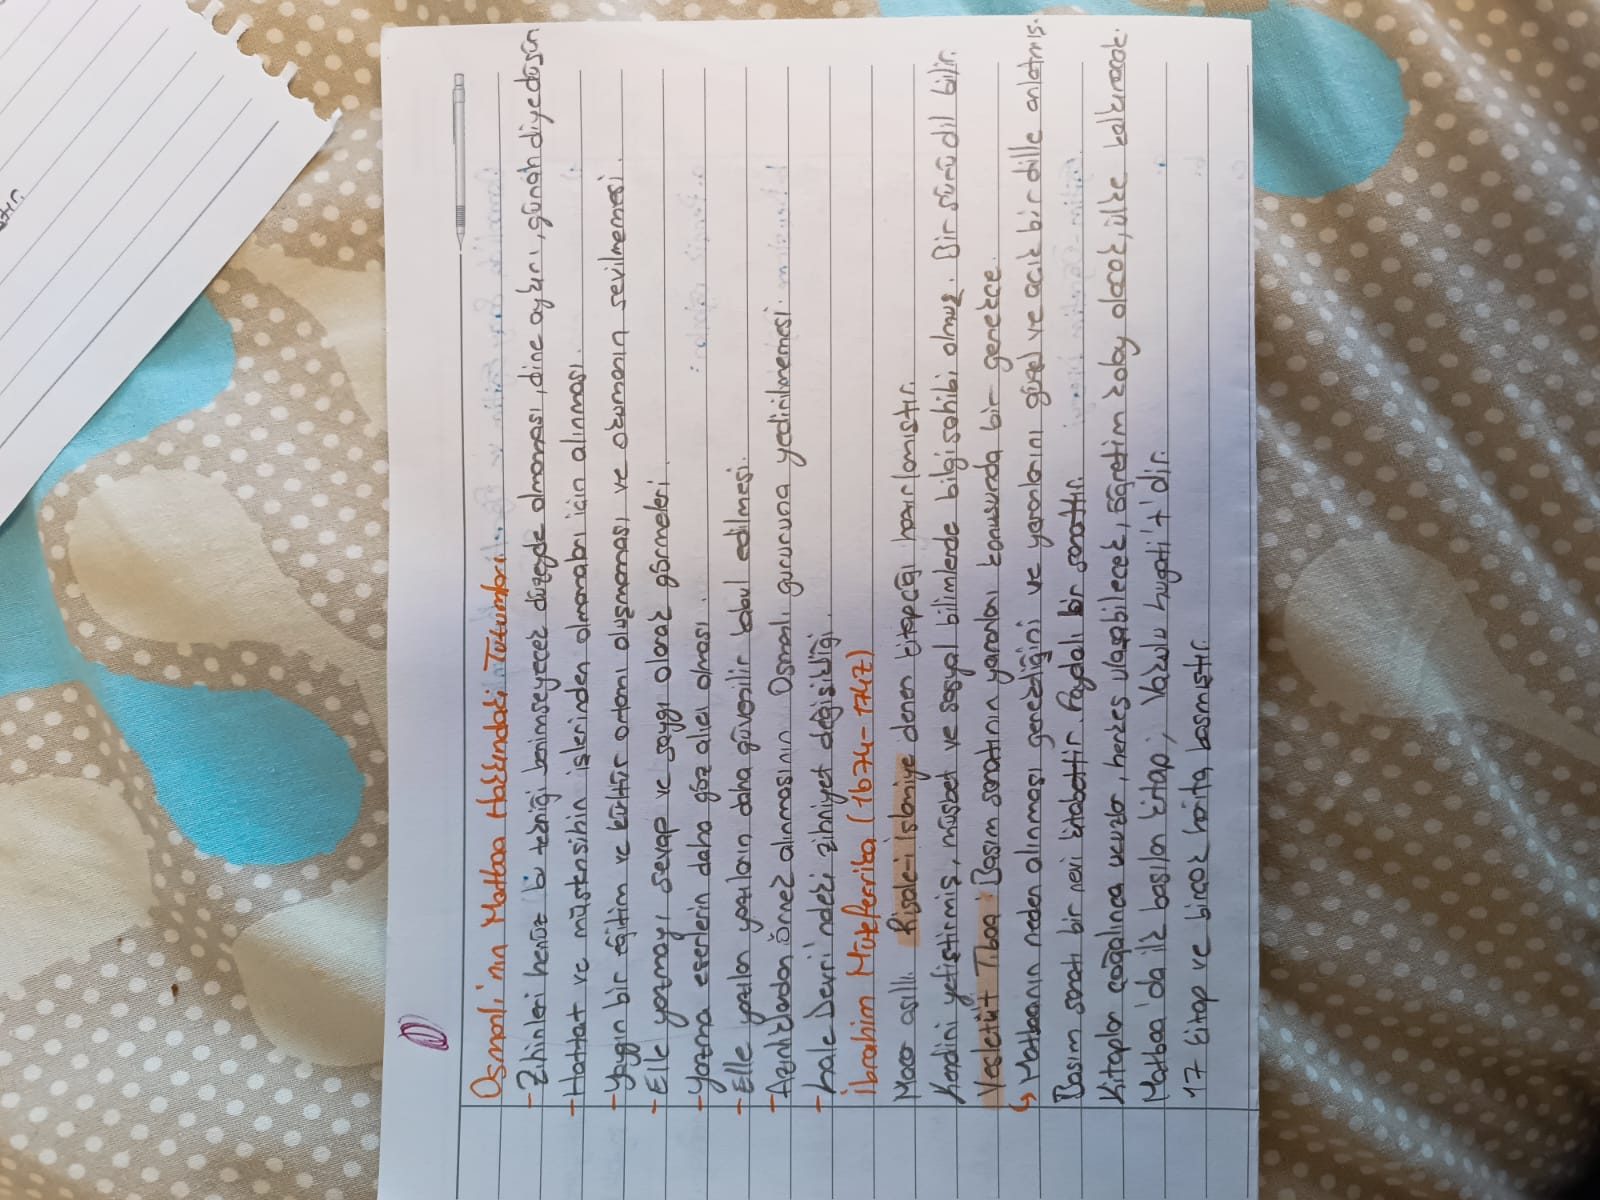 Osmanlı'nın Matbaa Hakkındaki Tutumları
- Zihinleri henüz bu tekniği benimseyecek düzeyde olmaması, dine aykırı, günah diye düşün
- Hattat ve müstensihin işlerinden olmamaları için alınması.
- Yaygın bir eğitim ve kültür ortamı oluşmaması ve okumanın sevilmemesi.
- Elle yazmayı sevap ve saygı olarak görmeleri.
- Yazma eserlerin daha göz alıcı olması.
- Elle yazılan yazıların daha güvenilir kabul edilmesi.
- Azınlıklardan örnek alınmasının Osmanlı gururuna yedirilmemesi.
- Lale Devri'ndeki zihniyet değişikliği.
İbrahim Müteferrika (1674-1747)
Macar asıllı. Risale-i İslamiye denen kitapçığı hazırlamıştır.
Kendini yetiştirmiş, müsbet ve sosyal bilimlerde bilgi sahibi olmuş. Bir sürü dil bilir.
Vesletüt Tıbaa: Basım sanatının yararları konusunda bir gerekçe.
↳ Matbaanın neden alınması gerektiğini ve yararlarını güzel ve açık bir dille anlatmış.
Basım sanatı bir nevi kitabettir. Faydalı bir sanattır.
Kitapları çoğalınca ucuzlar, herkes ulaşabilecek, öğretim kolay olacak, ülke kalkınacak.
Matbaa'da ilk basılan kitap; Vakulu lugati't'dir.
17 kitap ve birçok harita basmıştır.